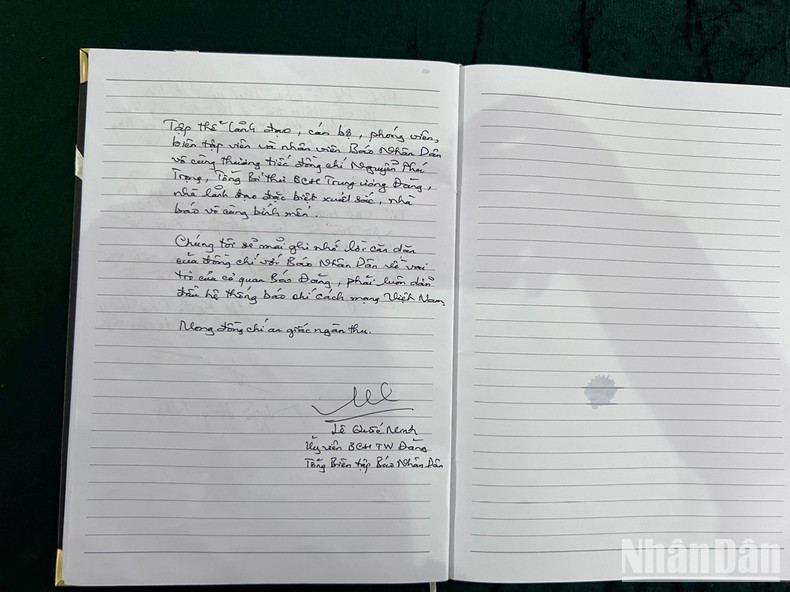 Tập thể lãnh đạo, cán bộ, phóng viên,
biên tập viên và nhân viên Báo Nhân Dân
vô cùng thương tiếc đồng chí Nguyễn Phú
Trọng, Tổng Bí thư BCH Trung ương Đảng,
nhà lãnh đạo đặc biệt xuất sắc, nhà
báo vô cùng kính mến.
Chúng tôi sẽ mãi ghi nhớ lời căn dặn
của đồng chí với Báo Nhân Dân về vai
trò của cơ quan Báo Đảng, phải luôn dẫn
đầu hệ thống báo chí cách mạng Việt Nam.
Mong đồng chí an giấc ngàn thu.
Lê Quốc Minh
Ủy viên BCH TW Đảng
Tổng Biên tập Báo Nhân Dân
NhânDân